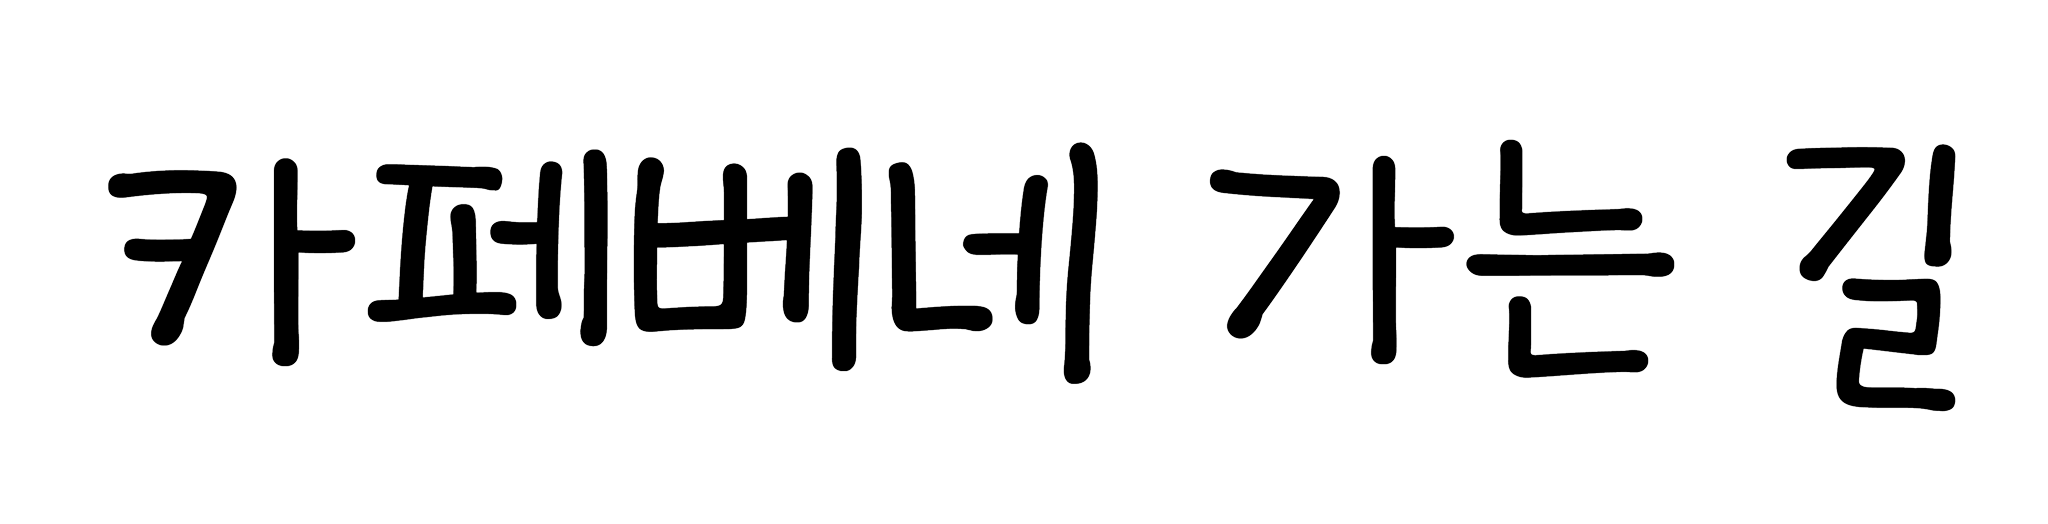 카페베네 가는 길